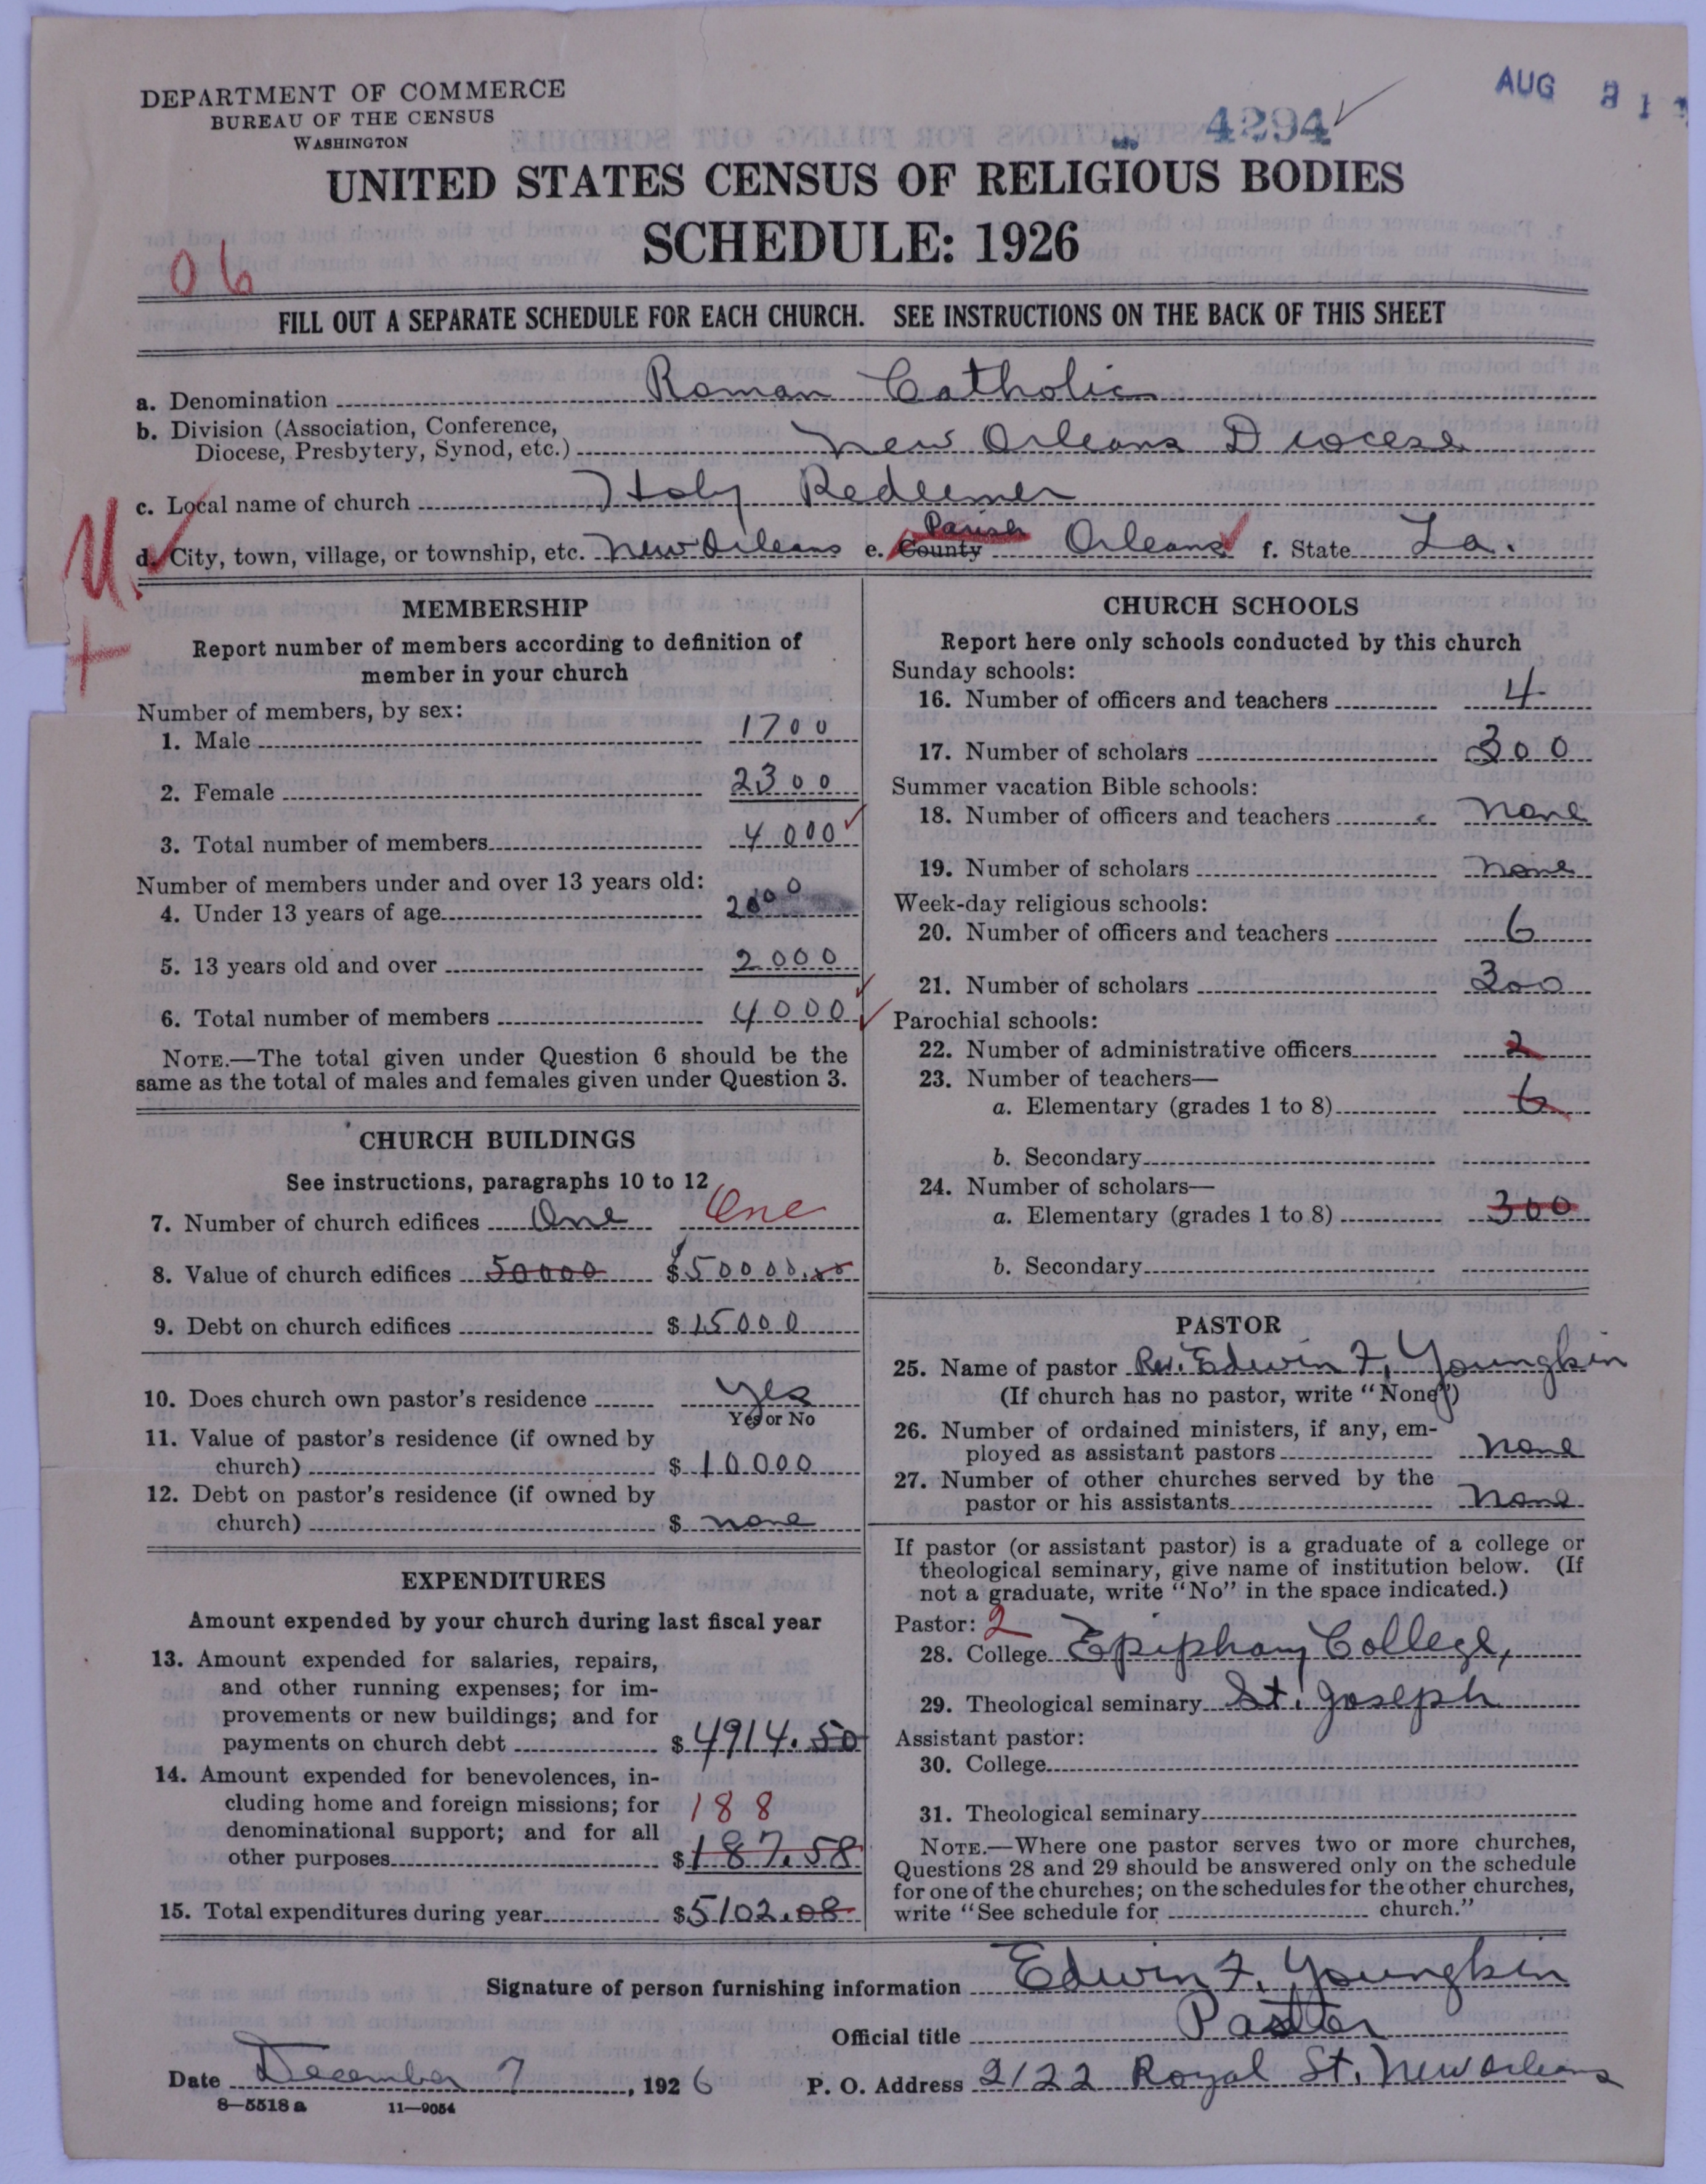 DEPARTMENT OF COMMERCE
BUREAU OF THE CENSUS
WASHINGTON
4294
AUG 31
UNITED STATES CENSUS OF RELIGIOUS BODIES
SCHEDULE: 1926
06
FILL OUT A SEPARATE SCHEDULE FOR EACH CHURCH. SEE INSTRUCTIONS ON THE BACK OF THIS SHEET
a. Denomination Roman Catholic
b. Division (Association, Conference,
Diocese, Presbytery, Synod, etc.) New Orleans Diocese
c. Local name of church Holy Redeemer
d. City, town, village, or township, etc. New Orleans e. County Parish Orleans f. State La.
MEMBERSHIP
Report number of members according to definition of
member in your church
Number of members, by sex:
1. Male 1700
2. Female 2300
3. Total number of members 4000
Number of members under and over 13 years old:
4. Under 13 years of age 2000
5. 13 years old and over 2000
6. Total number of members 4000
NOTE.—The total given under Question 6 should be the
same as the total of males and females given under Question 3.
CHURCH BUILDINGS
See instructions, paragraphs 10 to 12
7. Number of church edifices One One
8. Value of church edifices 50000 $50000.00
9. Debt on church edifices $15000
10. Does church own pastor's residence yes
Yes or No
11. Value of pastor's residence (if owned by
church) $10000
12. Debt on pastor's residence (if owned by
church) $ none
EXPENDITURES
Amount expended by your church during last fiscal year
13. Amount expended for salaries, repairs,
and other running expenses; for im-
provements or new buildings; and for
payments on church debt $4914.50
14. Amount expended for benevolences, in-
cluding home and foreign missions; for
188
denominational support; and for all
other purposes $187.58
15. Total expenditures during year $5102.08
CHURCH SCHOOLS
Report here only schools conducted by this church
Sunday schools:
16. Number of officers and teachers 4
17. Number of scholars 300
Summer vacation Bible schools:
18. Number of officers and teachers none
19. Number of scholars none
Week-day religious schools:
20. Number of officers and teachers 6
21. Number of scholars 300
Parochial schools:
22. Number of administrative officers 2
23. Number of teachers—
a. Elementary (grades 1 to 8) 6
b. Secondary
24. Number of scholars—
a. Elementary (grades 1 to 8) 300
b. Secondary
PASTOR
25. Name of pastor Rev. Edwin F. Youngkin
(If church has no pastor, write "None")
26. Number of ordained ministers, if any, em-
ployed as assistant pastors none
27. Number of other churches served by the
pastor or his assistants none
If pastor (or assistant pastor) is a graduate of a college or
theological seminary, give name of institution below. (If
not a graduate, write "No" in the space indicated.)
Pastor: 2
28. College Epiphany College,
29. Theological seminary St. Joseph
Assistant pastor:
30. College
31. Theological seminary
NOTE.—Where one pastor serves two or more churches,
Questions 28 and 29 should be answered only on the schedule
for one of the churches; on the schedules for the other churches,
write "See schedule for church."
Signature of person furnishing information Edwin F. Youngkin
Official title Pastor
Date December 7, 1926 P. O. Address 2122 Royal St. New Orleans
8—5518a 11—9054